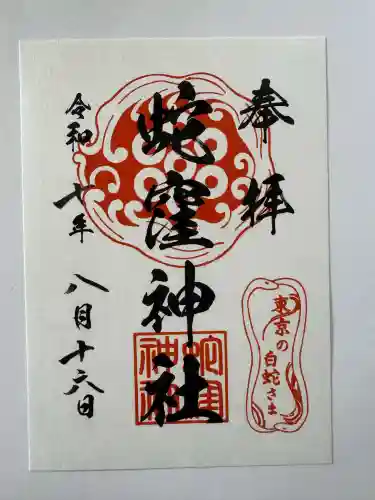 奉拝
蛇窪神社
令和七年
八月十六日
東京の
白蛇さま
蛇窪
神社